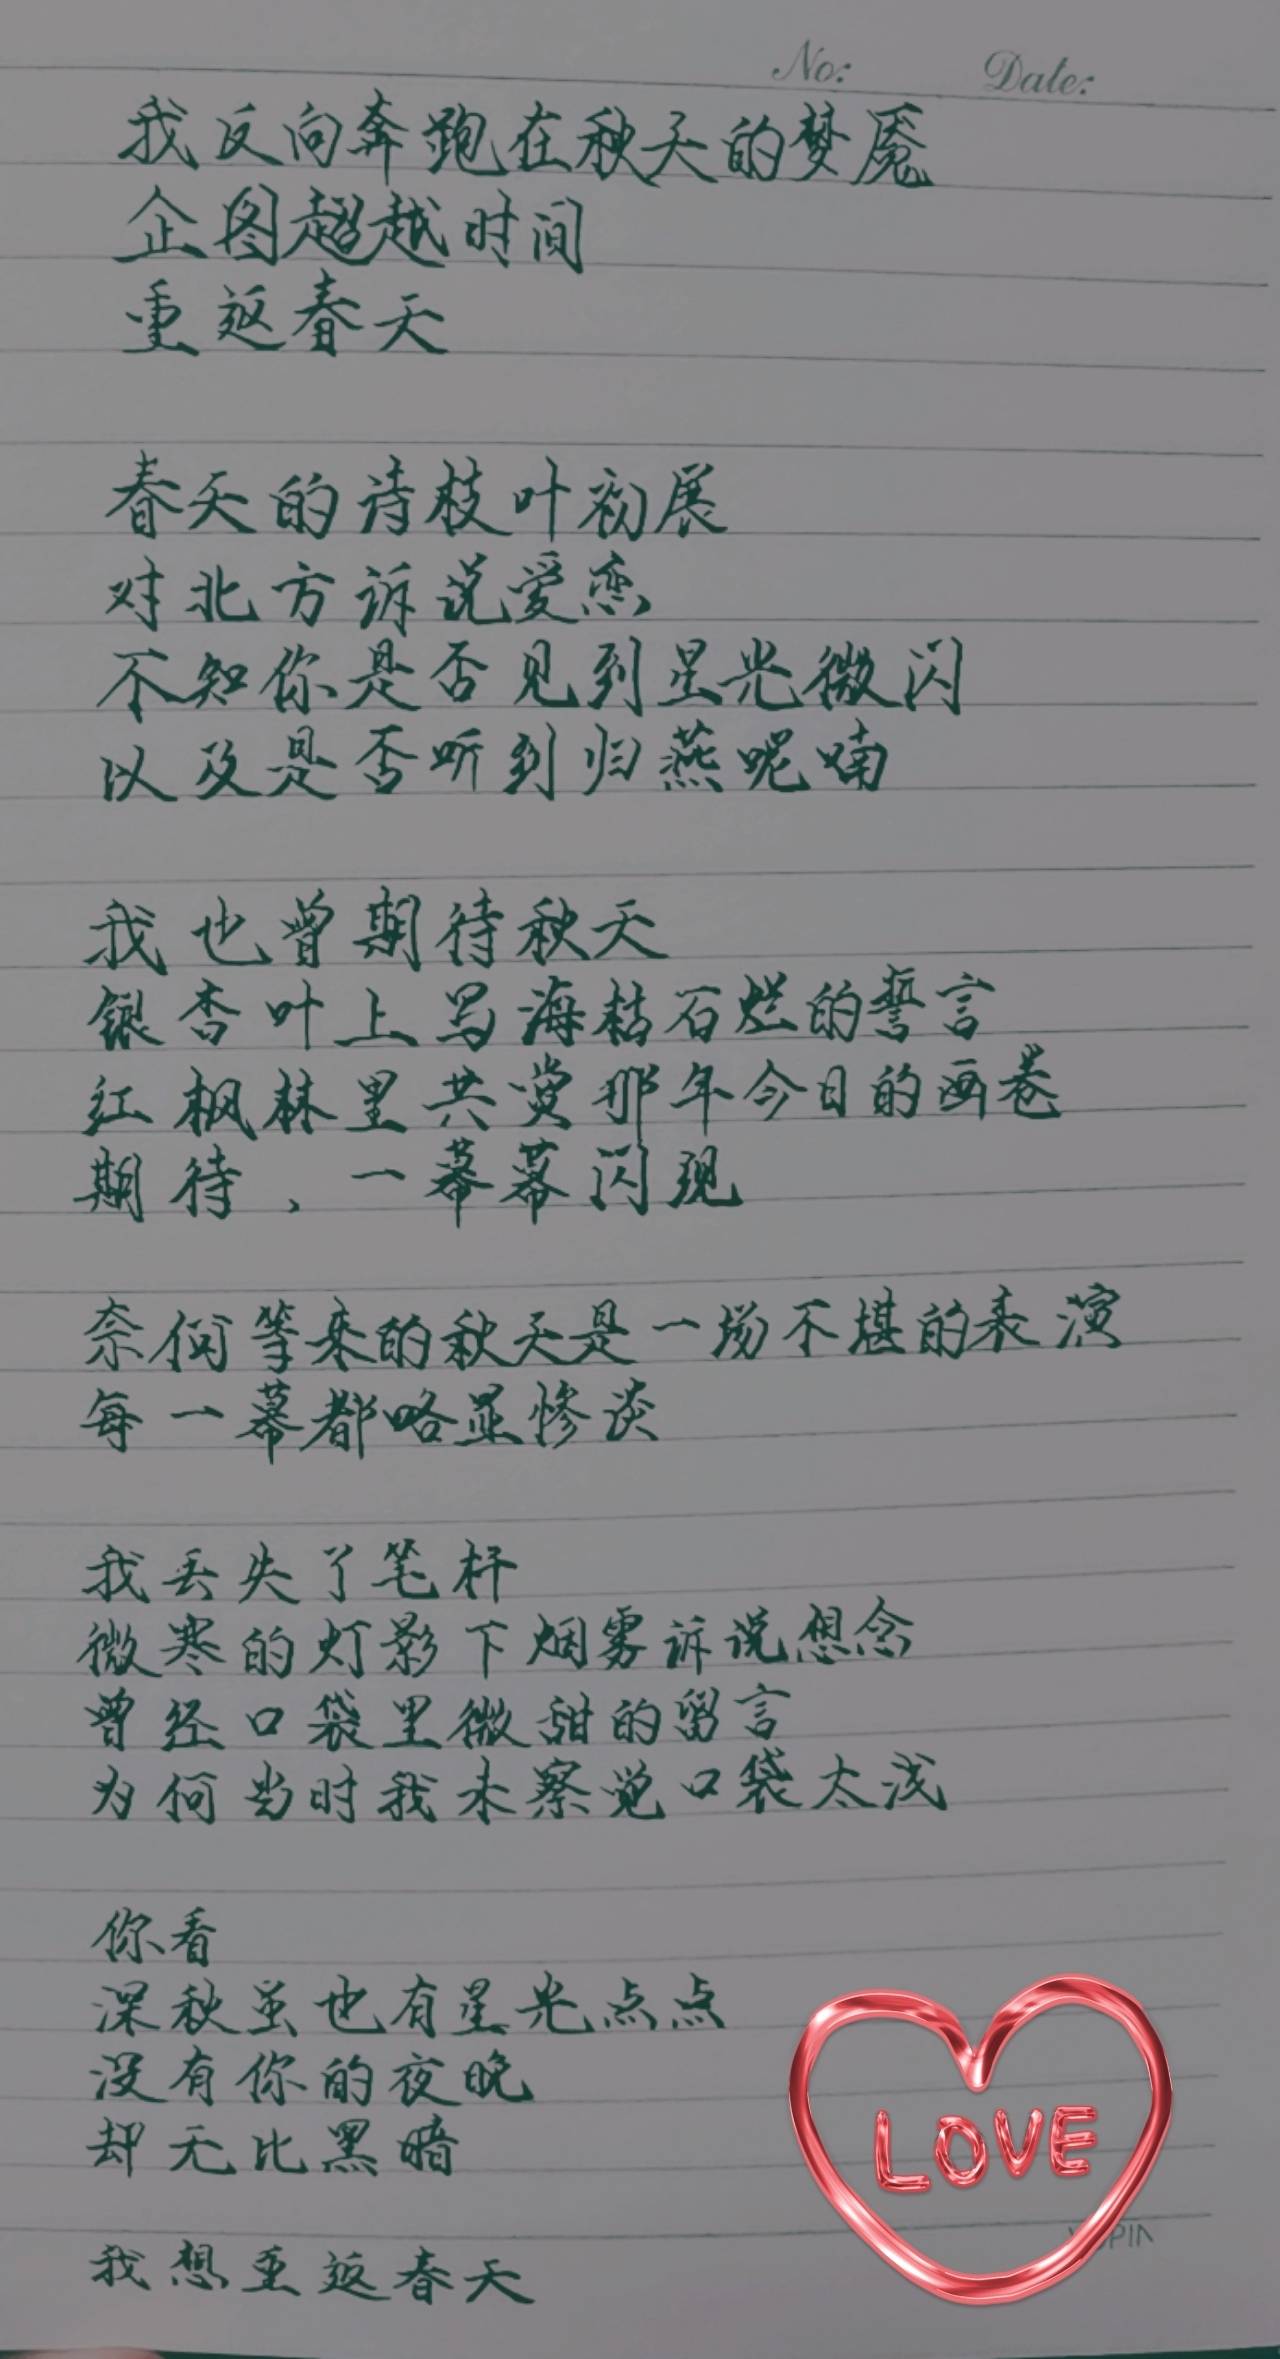 No: Date:
我反向奔跑在秋天的梦魇
企图超越时间
重返春天
春天的诗枝叶初展
对北方诉说爱恋
不知你是否见到星光微闪
以及是否听到归燕呢喃
我也曾期待秋天
银杏叶上写海枯石烂的誓言
红枫林里共赏那年今日的画卷
期待、一幕幕闪现
奈何等来的秋天是一场不堪的表演
每一幕都略显惨淡
我丢失了笔杆
微寒的灯影下烟雾诉说想念
曾经口袋里微甜的留言
为何当时我未察觉口袋太浅
你看
深秋虽也有星光点点
没有你的夜晚
却无比黑暗
LOVE
我想重返春天